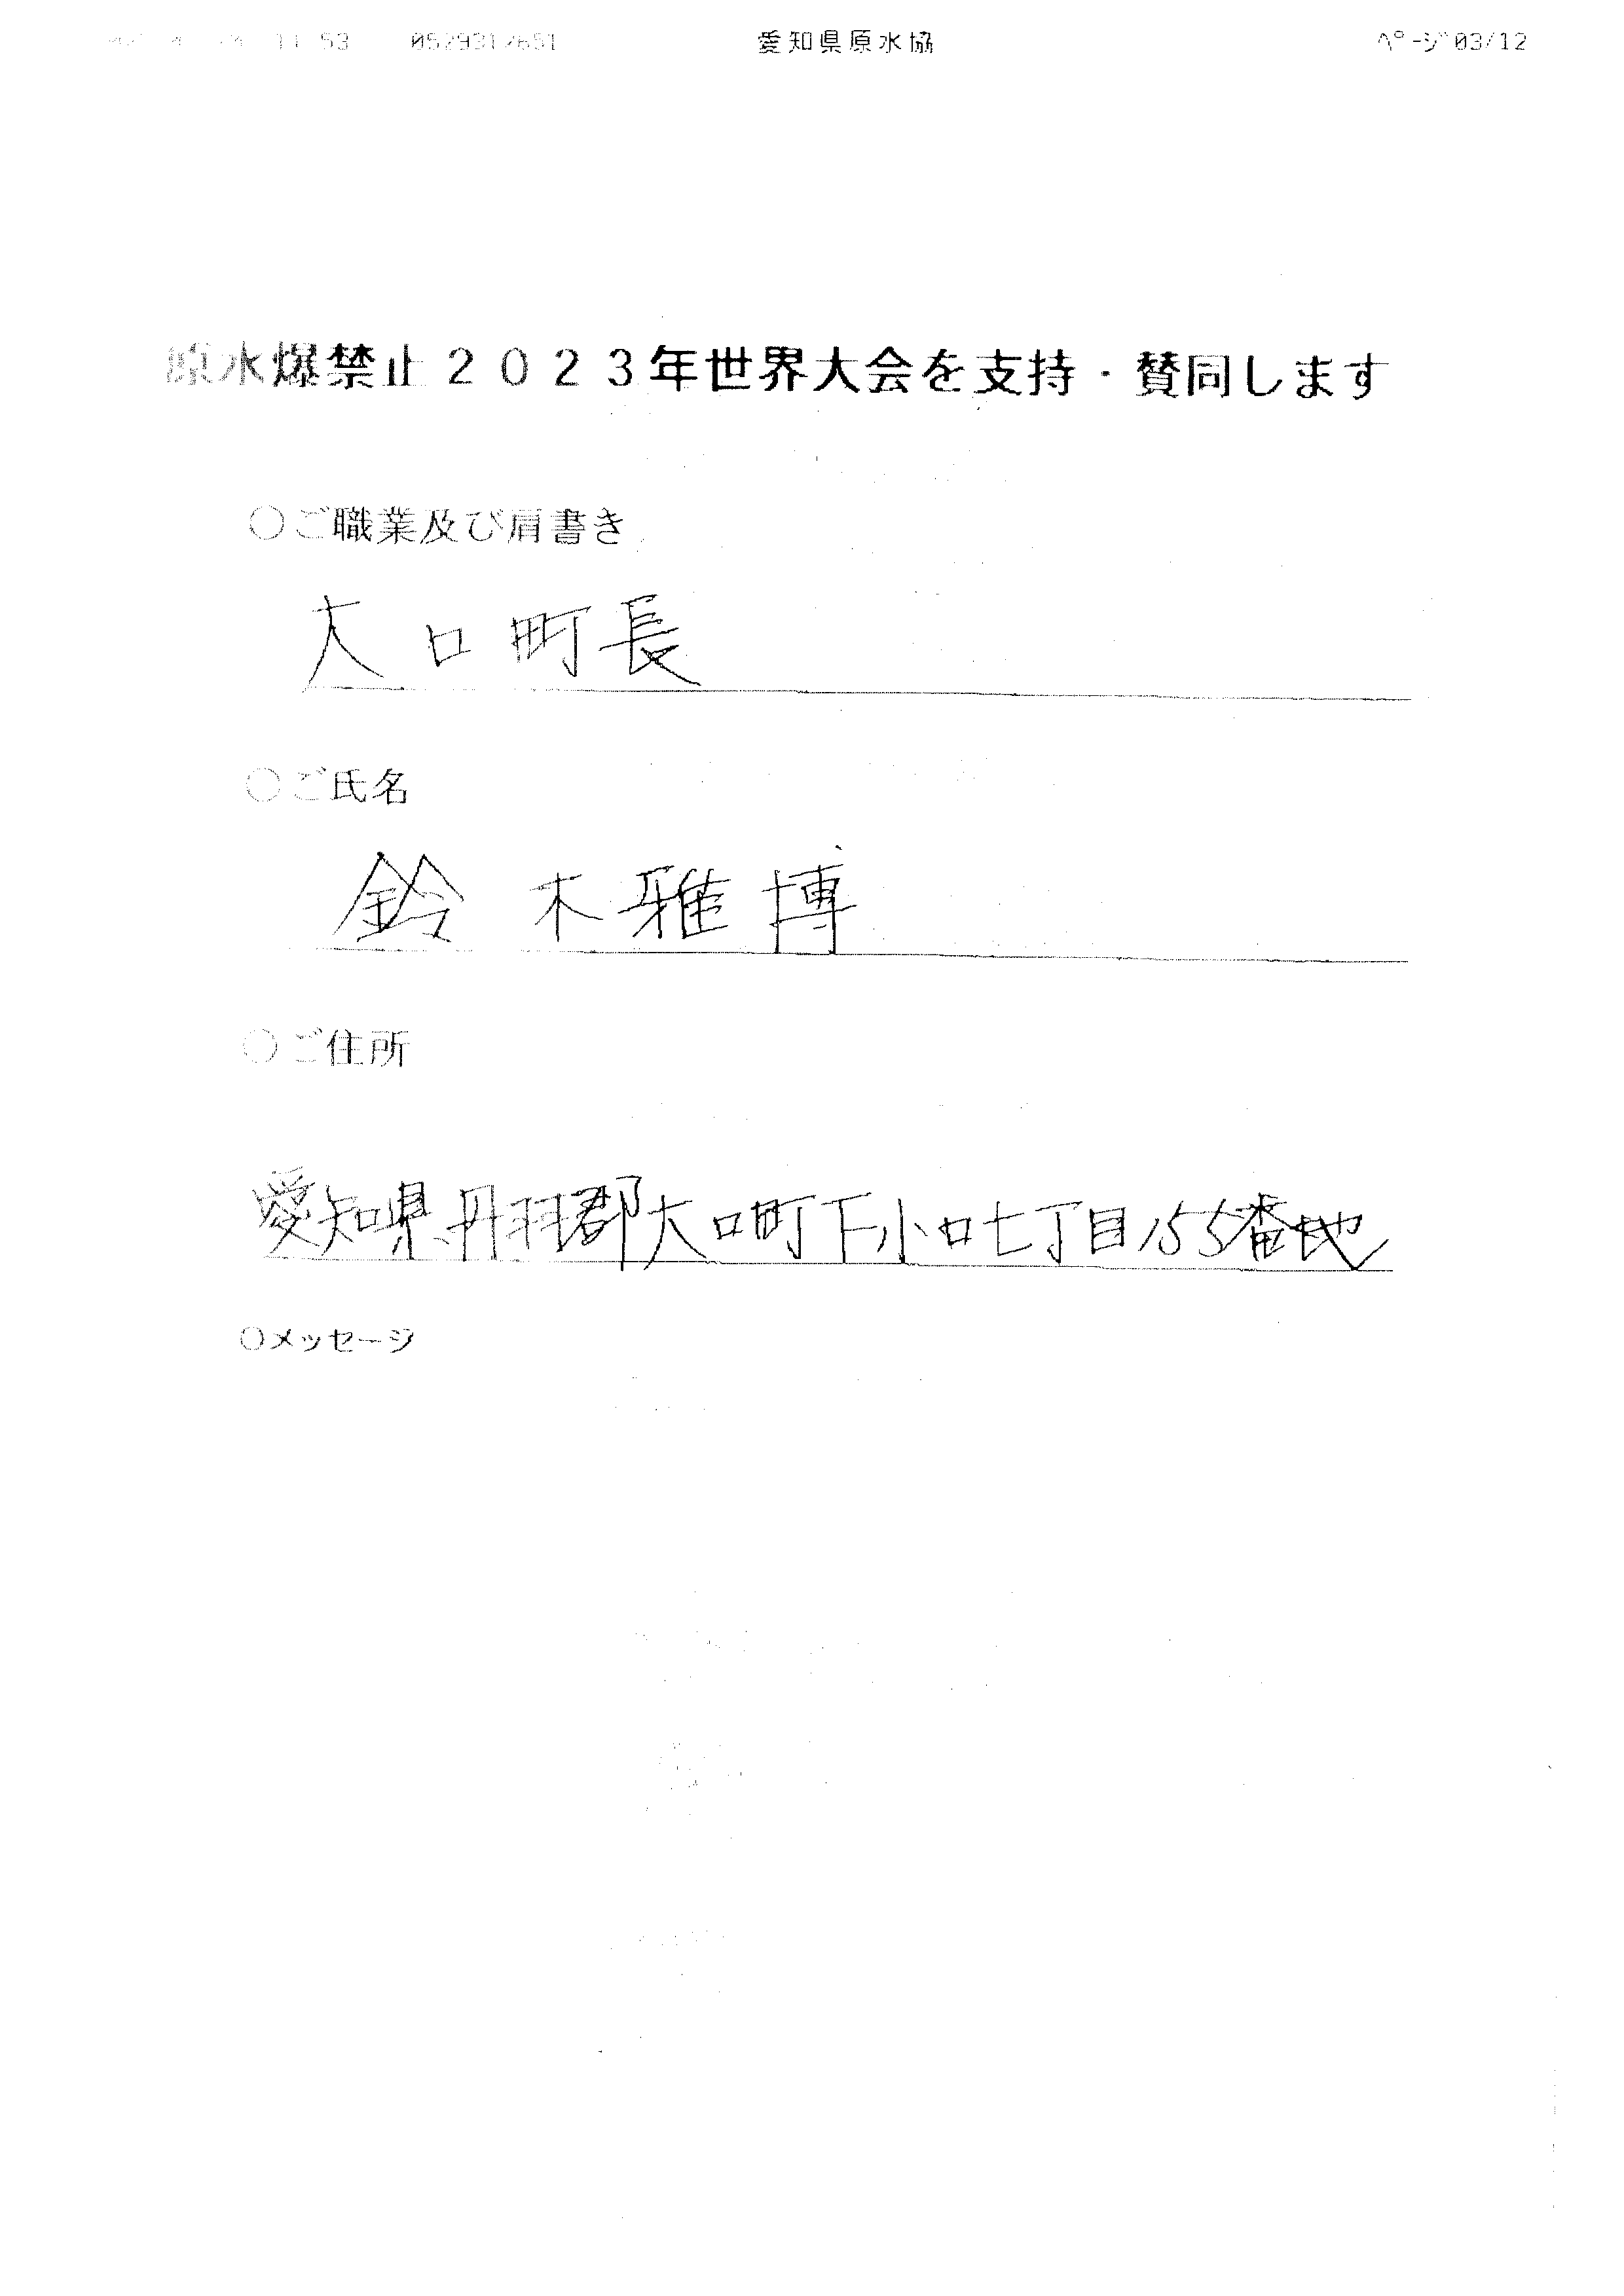 11 53 0529317651 愛知県原水協 ﾍﾟｰｼﾞ 03/12
原水爆禁止２０２３年世界大会を支持・賛同します
○ご職業及び肩書き
大口町長
○ご氏名
鈴木雅博
○ご住所
愛知県丹羽郡大口町下小口七丁目155番地
○メッセージ